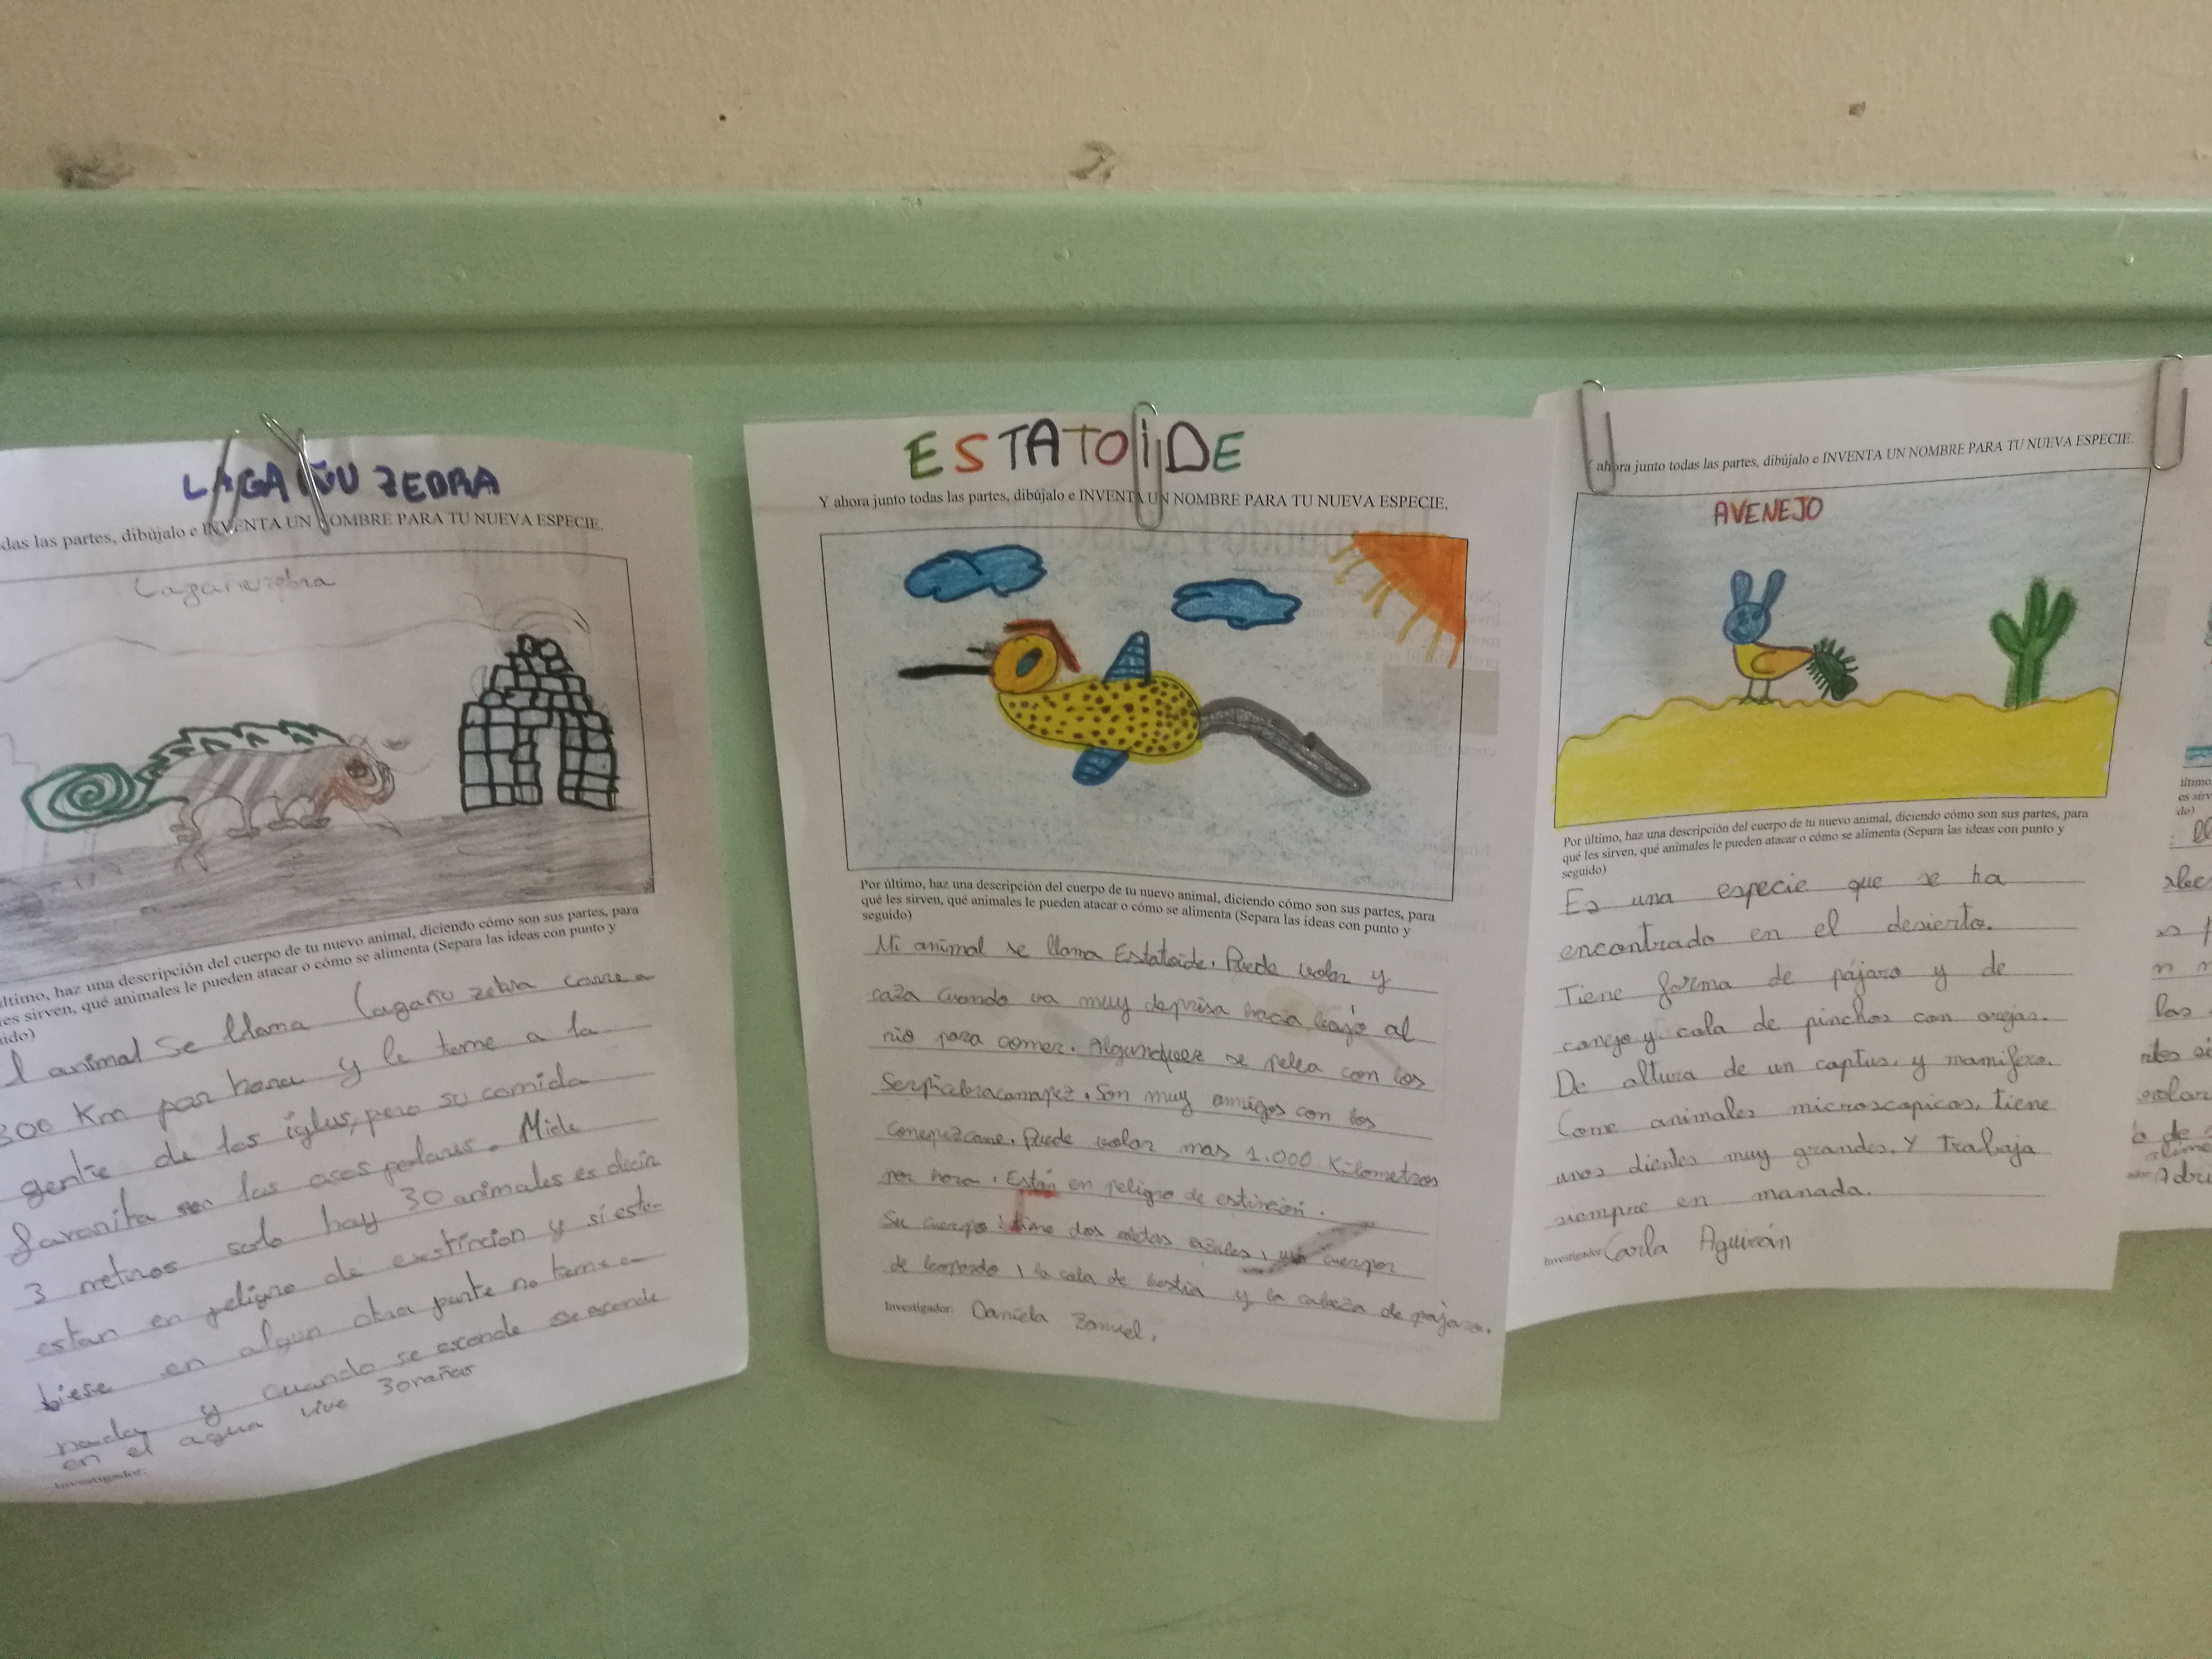 LAGAÑU ZEBRA
das las partes, dibújalo e INVENTA UN NOMBRE PARA TU NUEVA ESPECIE.
Lagañuzebra
último, haz una descripción del cuerpo de tu nuevo animal, diciendo cómo son sus partes, para
es sirven, qué animales le pueden atacar o cómo se alimenta (Separa las ideas con punto y
uido)
l animal se llama lagañu zebra corre a
300 Km por hora y le teme a la
gente de los iglus, pero su comida
favorita son los osos polares. Mide
3 metros solo hay 30 animales es decir
estan en peligro de exstincion y si estu-
biese en algun otra parte no teme a
nada y cuando se esconde se esconde
en el agua vive 30 rañas
Investigador:
ESTATOIDE
Y ahora junto todas las partes, dibújalo e INVENTA UN NOMBRE PARA TU NUEVA ESPECIE.
Por último, haz una descripción del cuerpo de tu nuevo animal, diciendo cómo son sus partes, para
qué les sirven, qué animales le pueden atacar o cómo se alimenta (Separa las ideas con punto y
seguido)
Mi animal se llama Estatoide. Puede volar y
caza cuando va muy deprisa hacia bajo al
rio para comer. se pelea con los
Son muy amigos con los
Puede volar mas 1.000 Kilometros
por hora. Están en peligro de estinción.
Su cuerpo tiene dos aletas azules, un cuerpor
de leopardo, la cola de y la cabeza de pájaro.
Investigador: Daniela
Y ahora junto todas las partes, dibújalo e INVENTA UN NOMBRE PARA TU NUEVA ESPECIE.
AVENEJO
Por último, haz una descripción del cuerpo de tu nuevo animal, diciendo cómo son sus partes, para
qué les sirven, qué animales le pueden atacar o cómo se alimenta (Separa las ideas con punto y
seguido)
Es una especie que se ha
encontrado en el desierto.
Tiene forma de pájaro y de
conejo y cola de pinchos con orejas.
De altura de un captus. y mamifero.
Come animales microscopicos, tiene
unos dientes muy grandes. Y trabaja
siempre en manada.
Investigador: Carla Aguirán
último,
es sirv
do)